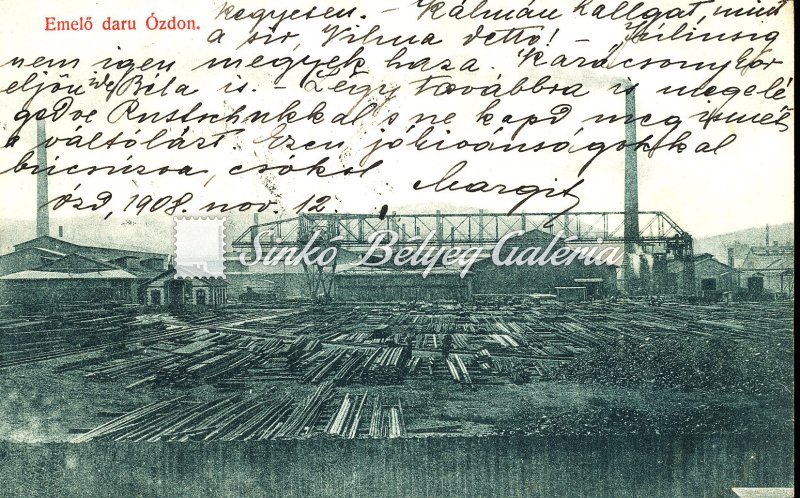 Emelő daru Ózdon.
kegyesen. - Kálmán hallgat, mint
a sír, Vilma detto! -
nem igen megyek haza. Karácsonykor
eljön Béla is. - Légy továbbra is megelé
gedve Rustschukkal s ne kapd meg ismét
a váltólázt. Ezen jókivánságokkal
búcsúzva, csókol
Margit
Ózd, 1908. nov. 12.
Sinkó Bélyeg Galéria